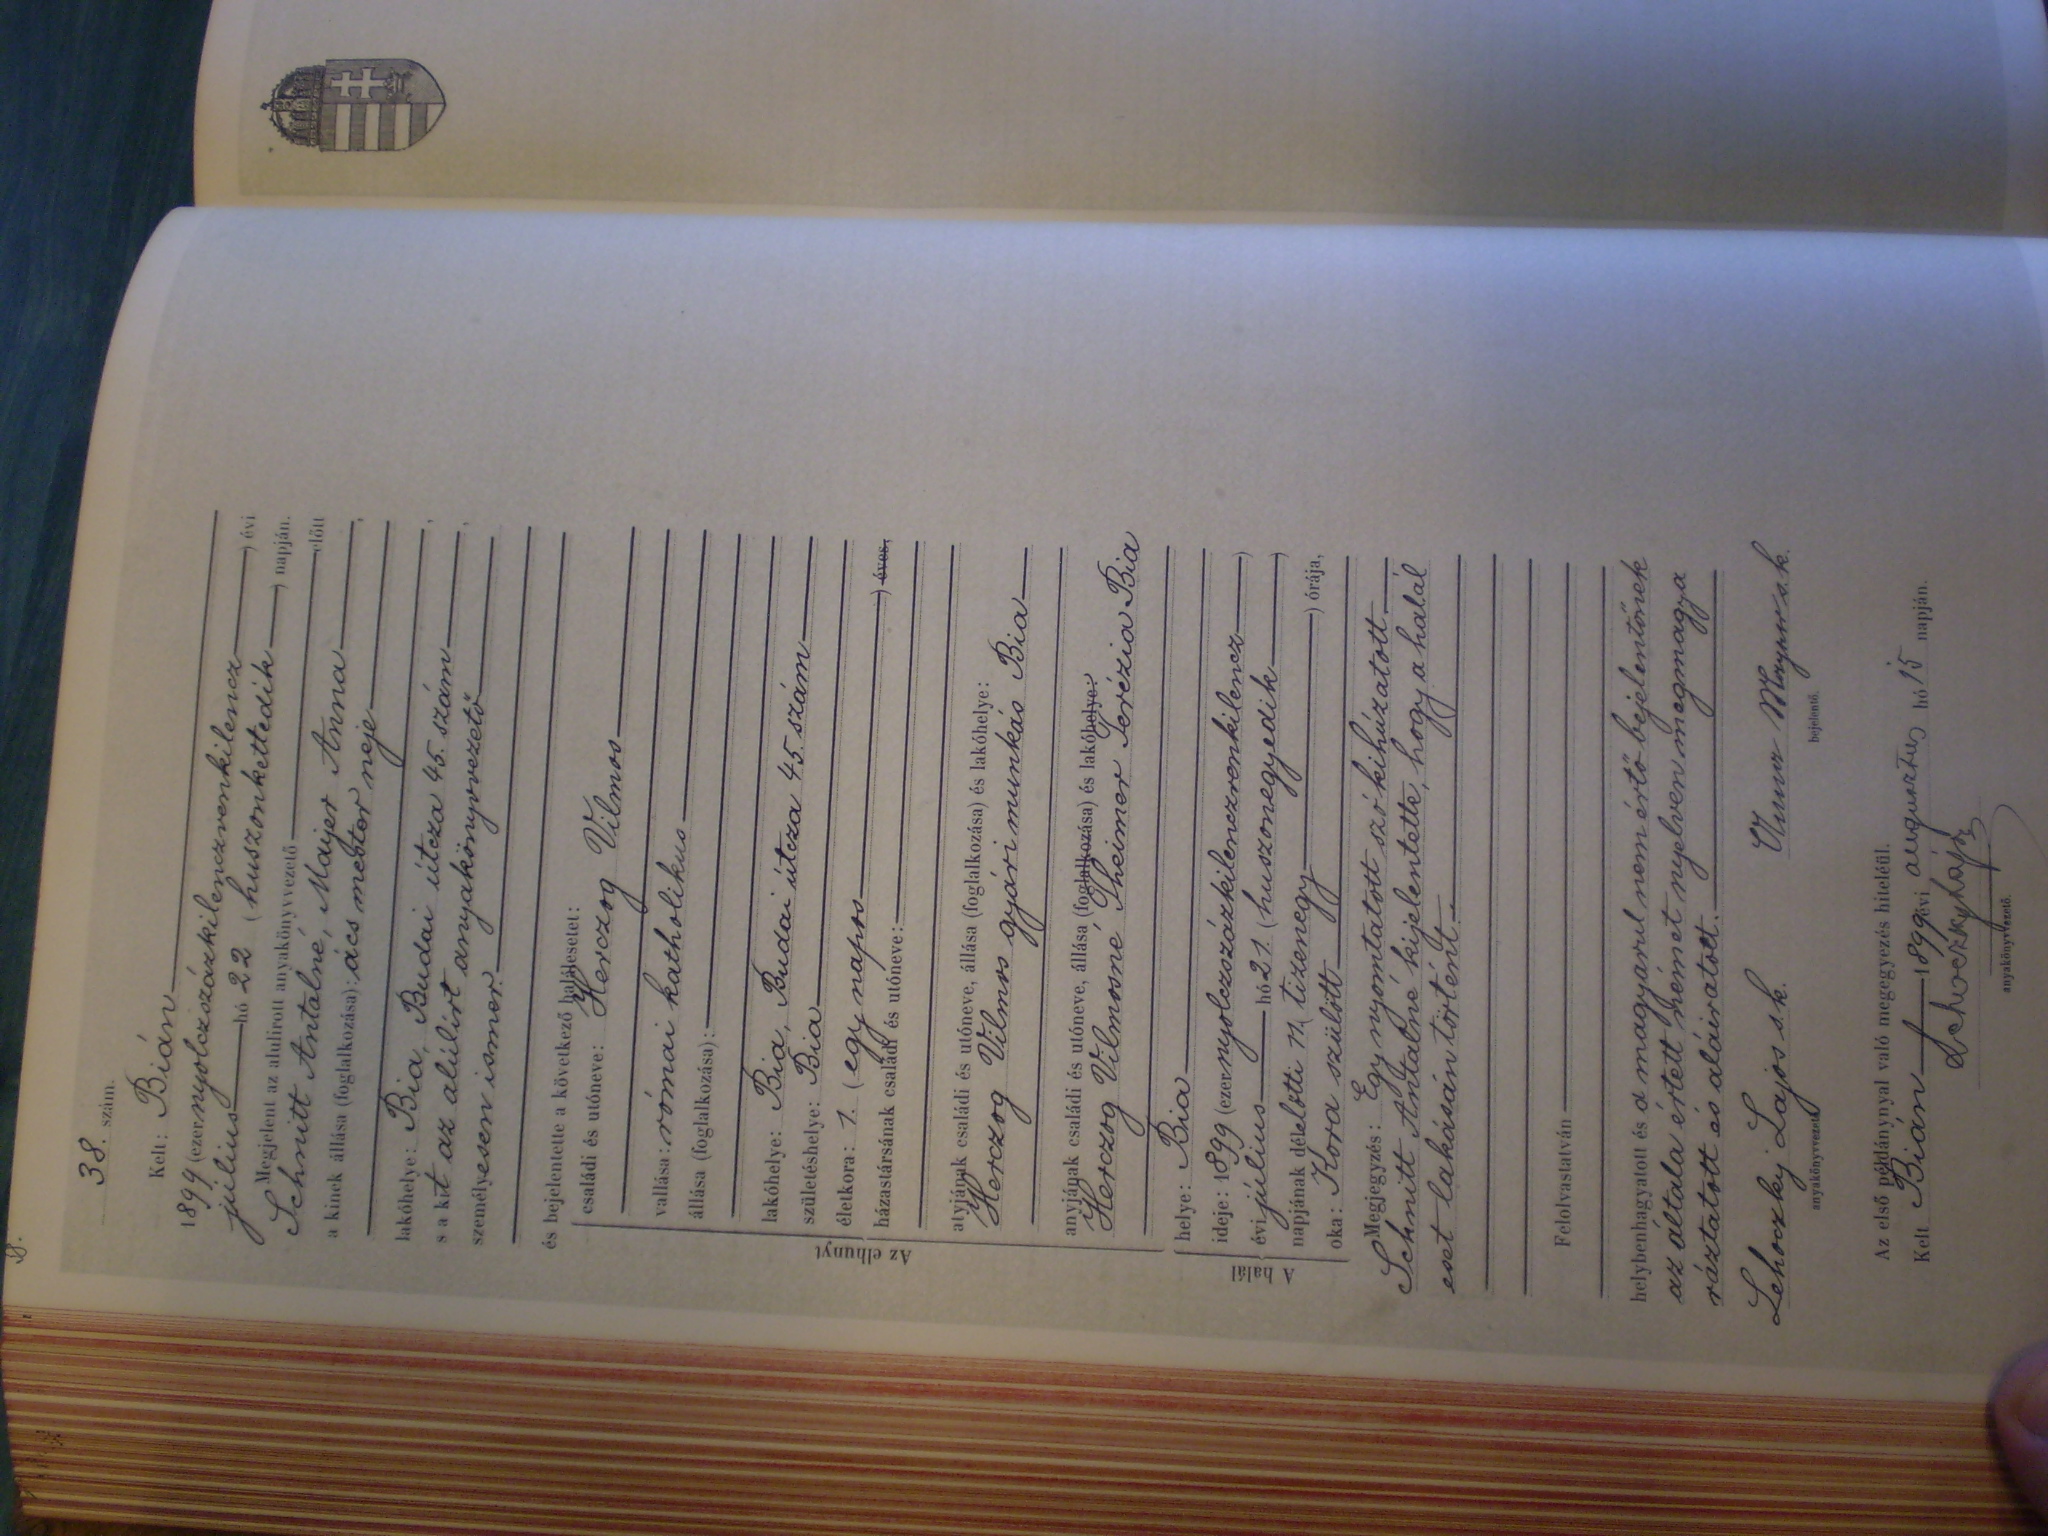 38. szám.
Kelt: Bián
1899 (ezernyolczszázkilenczvenkilencz) évi
július hó 22 (huszonkettedik) napján.
Megjelent az alulirott anyakönyvvezető előtt
Schnitt Antalné, Majer Anna,
a kinek állása (foglalkozása): ács mester neje
lakóhelye: Bia, Budai útcza 45. szám,
s a kit az alúlírt anyakönyvvezető,
személyesen ismer.
és bejelentette a következő halálesetet:
Az elhunyt
családi és utóneve: Herczog Vilmos
vallása: római katholikus
állása (foglalkozása):
lakóhelye: Bia, Budai útcza 45. szám
születéshelye: Bia
életkora: 1. (egy napos) éves,
házastársának családi és utóneve:
atyjának családi és utóneve, állása (foglalkozása) és lakóhelye:
Herczog Vilmos gyári munkás Bia
anyjának családi és utóneve, állása (foglalkozása) és lakóhelye:
Herczog Vilmosné Theimer Terézia Bia
A halál
helye: Bia
ideje: 1899 (ezernyolczszázkilenczvenkilencz)
évi július hó 21. (huszonegyedik)
napjának délelőtti 11 (tizenegy) órája,
oka: Kora szülött
Megjegyzés: Egy nyomtatott szó kihúzatott
Schnitt Antalné kijelentette, hogy a halál
eset lakásán történt.
Felolvastatván
helybenhagyatott és a magyarul nem értő bejelentőnek
az általa értett német nyelven megmagya
ráztatott és aláiratott.
Lehoczky Lajos s.k. Anna Mayer s.k.
anyakönyvvezető bejelentő.
Az első példánnyal való megegyezés hiteléül.
Kelt Bián 1899 évi augusztus hó 15 napján.
Lehoczky Lajos
anyakönyvvezető.